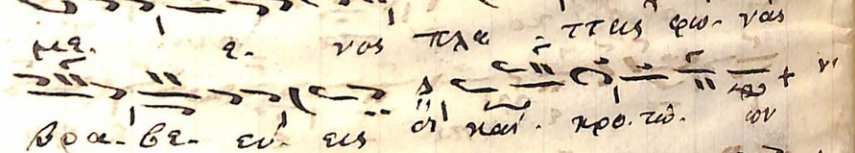 με. ε. νος πλα. ττεις φω. νὰς
βρα. βε. εύ. εις καί. κρο. τω. ων